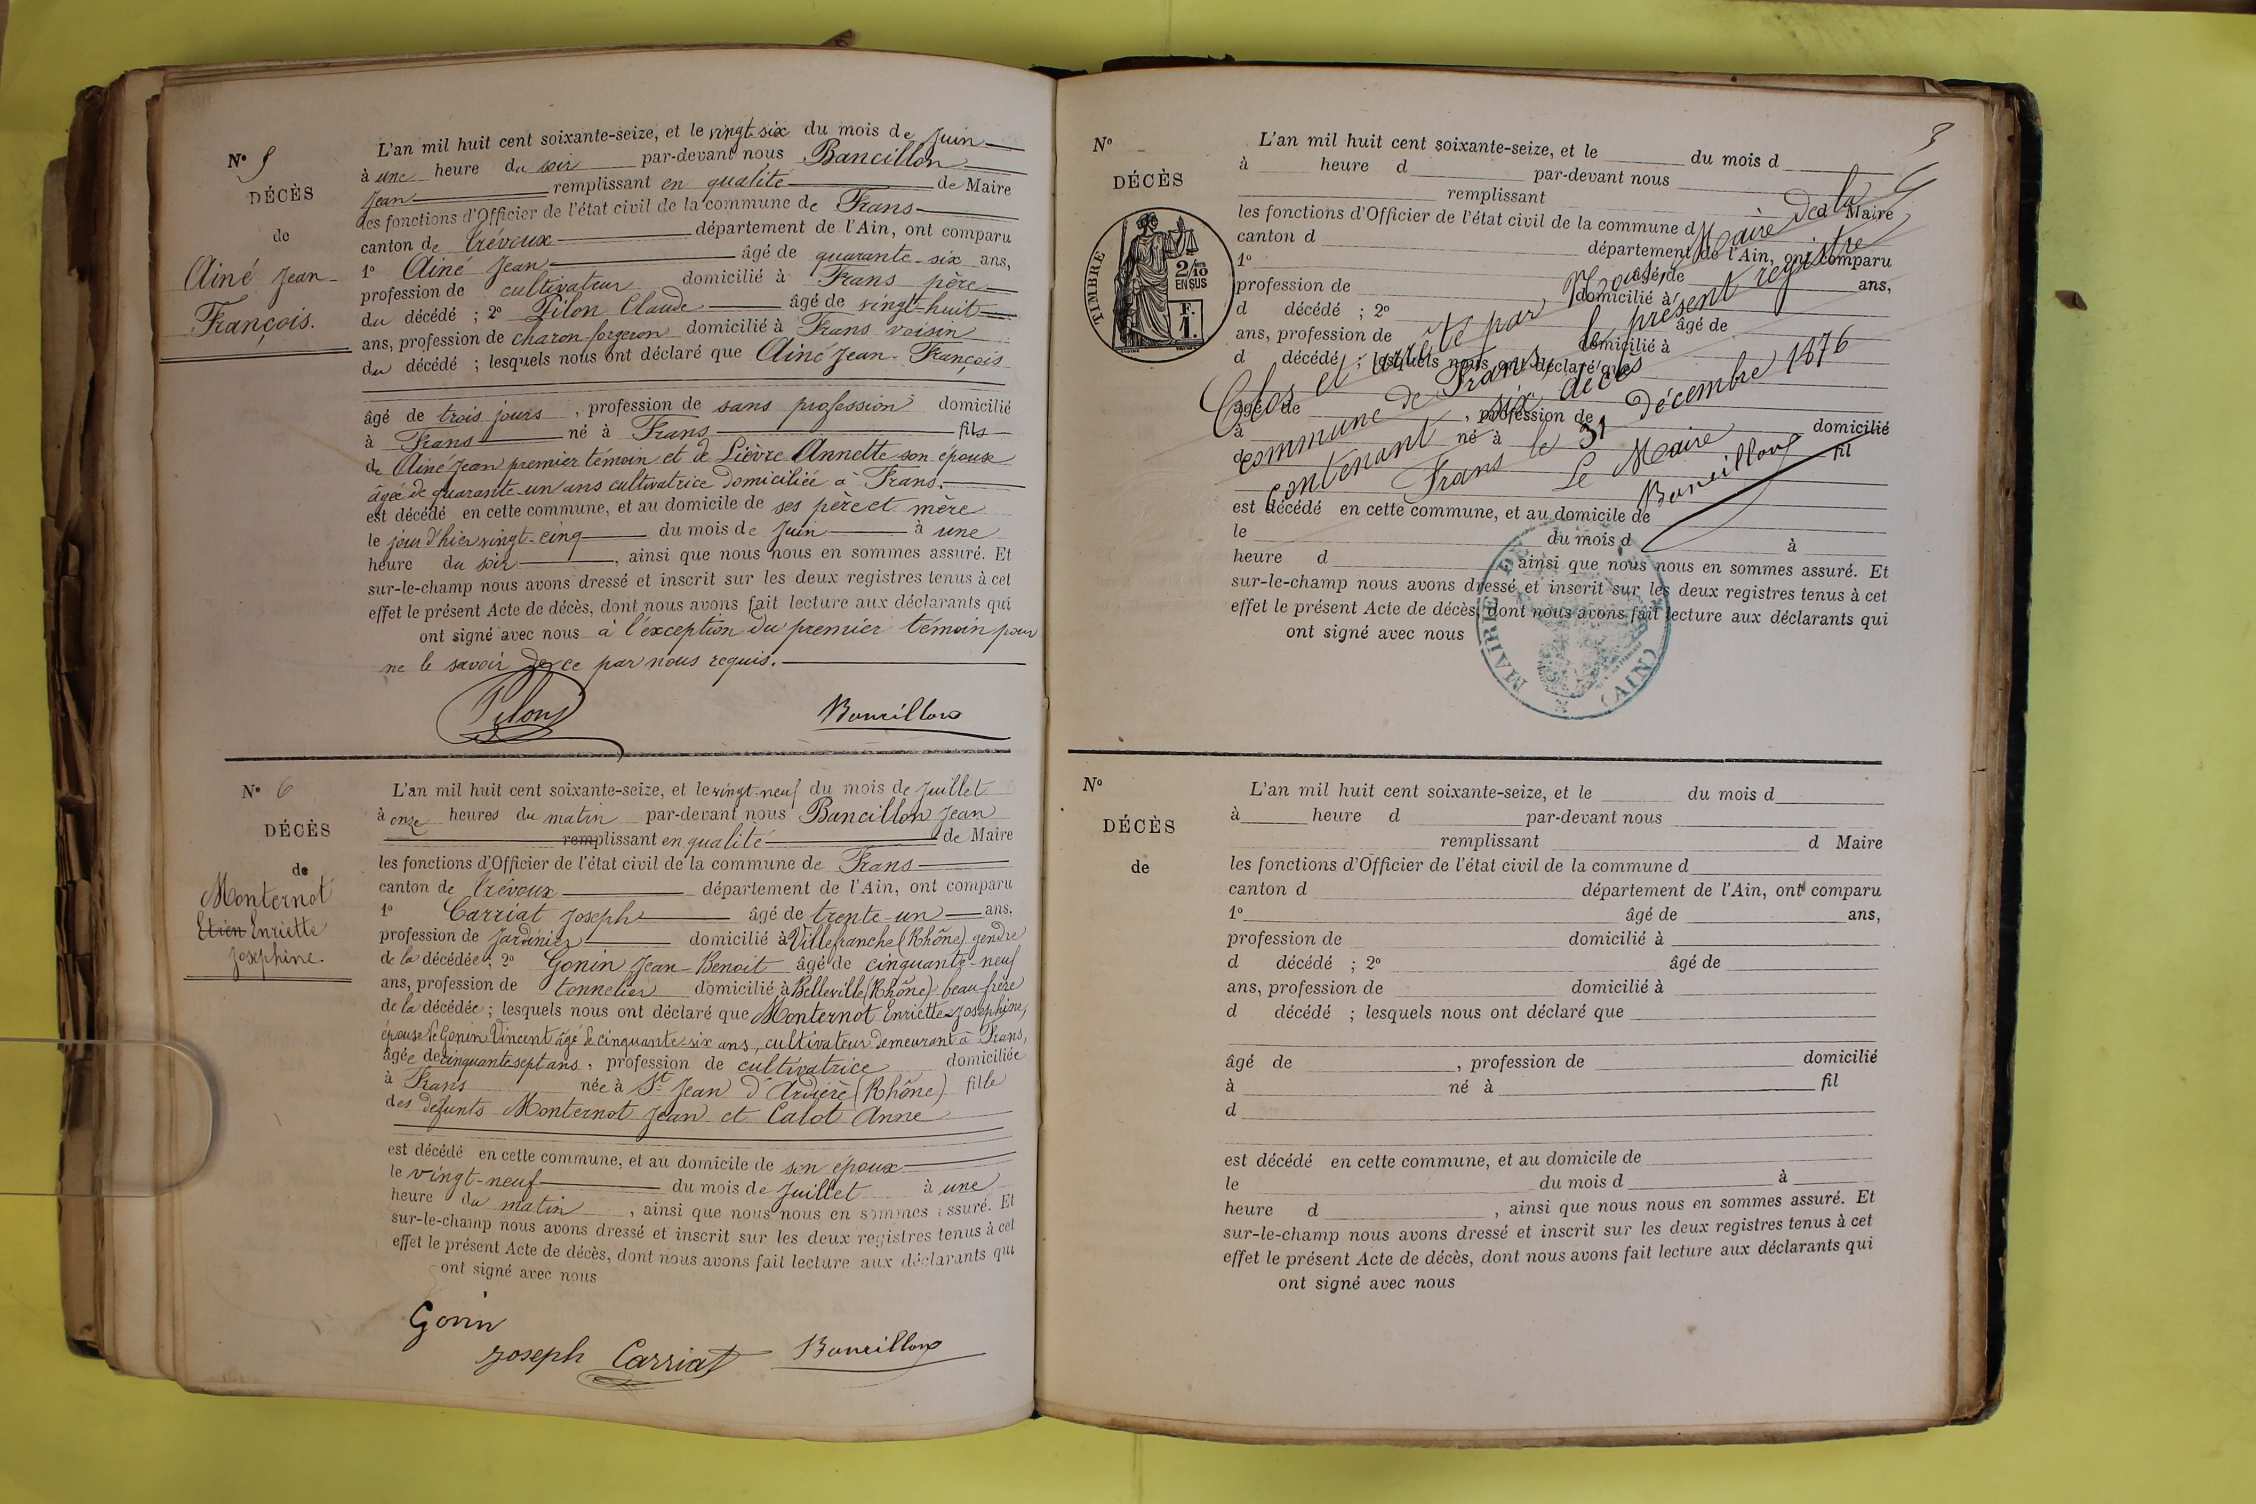 N° 5
DÉCÈS
de
Ainé Jean-
François.
L'an mil huit cent soixante-seize, et le vingt-six du mois de Juin
à une heure du soir par-devant nous Bancillon
Jean remplissant en qualité de Maire
les fonctions d'Officier de l'état civil de la commune de Frans
canton de Trévoux département de l'Ain, ont comparu
1° Ainé Jean âgé de quarante-six ans,
profession de cultivateur domicilié à Frans père
du décédé ; 2° Pilon Claude âgé de vingt-huit
ans, profession de charon-forgeron domicilié à Frans voisin
du décédé ; lesquels nous ont déclaré que Ainé Jean-François
âgé de trois jours , profession de sans profession domicilié
à Frans né à Frans fils
de Ainé Jean premier témoin et de Lièvre Annette son épouse
âgée de quarante-un ans cultivatrice domiciliée à Frans.
est décédé en cette commune, et au domicile de ses père et mère
le jour d'hier vingt-cinq du mois de Juin à une
heure du soir , ainsi que nous nous en sommes assuré. Et
sur-le-champ nous avons dressé et inscrit sur les deux registres tenus à cet
effet le présent Acte de décès, dont nous avons fait lecture aux déclarants qui
ont signé avec nous à l'exception du premier témoin pour
ne le savoir de ce par nous requis.
Pilon Bancillon
N° 6
DÉCÈS
de
Monternot
Etien Enriette
Josephine.
L'an mil huit cent soixante-seize, et le vingt-neuf du mois de Juillet
à onze heures du matin par-devant nous Bancillon Jean
remplissant en qualité de Maire
les fonctions d'Officier de l'état civil de la commune de Frans
canton de Trévoux département de l'Ain, ont comparu
1° Carriat Joseph âgé de trente-un ans,
profession de Jardinier domicilié à Villefranche (Rhône) gendre
de la décédée ; 2° Gonin Jean-Benoit âgé de cinquante-neuf
ans, profession de tonnelier domicilié à Belleville (Rhône) beau frère
de la décédée ; lesquels nous ont déclaré que Monternot Enriette-Josephine,
épouse de Gonin Vincent âgé de cinquante-six ans, cultivateur demeurant à Frans,
âgée de cinquante sept ans , profession de cultivatrice domiciliée
à Frans née à St Jean d'Ardière (Rhône) fille
des défunts Monternot Jean et Calot Anne
est décédé en cette commune, et au domicile de son époux
le vingt-neuf du mois de Juillet à une
heure du matin , ainsi que nous nous en sommes assuré. Et
sur-le-champ nous avons dressé et inscrit sur les deux registres tenus à cet
effet le présent Acte de décès, dont nous avons fait lecture aux déclarants qui
ont signé avec nous
Gonin
Joseph Carriat Bancillon
3
N°
DÉCÈS
TIMBRE
2/10 EN SUS
F. 1.
L'an mil huit cent soixante-seize, et le du mois d
à heure d par-devant nous
remplissant d Maire
les fonctions d'Officier de l'état civil de la commune d
canton d département de l'Ain, ont comparu
1° âgé de ans,
profession de domicilié à
d décédé ; 2° âgé de
ans, profession de domicilié à
d décédé ; lesquels nous ont déclaré que
âgé de , profession de domicilié
à né à fil
d
est décédé en cette commune, et au domicile de
le du mois d à
heure d ainsi que nous nous en sommes assuré. Et
sur-le-champ nous avons dressé et inscrit sur les deux registres tenus à cet
effet le présent Acte de décès, dont nous avons fait lecture aux déclarants qui
ont signé avec nous
Clos et arrêté par Nous, Maire de la
commune de Frans, le présent registre
contenant six décès
Frans le 31 décembre 1876
Le Maire
Bancillon
MAIRIE DE
(AIN)
N°
DÉCÈS
de
L'an mil huit cent soixante-seize, et le du mois d
à heure d par-devant nous
remplissant d Maire
les fonctions d'Officier de l'état civil de la commune d
canton d département de l'Ain, ont comparu
1° âgé de ans,
profession de domicilié à
d décédé ; 2° âgé de
ans, profession de domicilié à
d décédé ; lesquels nous ont déclaré que
âgé de , profession de domicilié
à né à fil
d
est décédé en cette commune, et au domicile de
le du mois d à
heure d , ainsi que nous nous en sommes assuré. Et
sur-le-champ nous avons dressé et inscrit sur les deux registres tenus à cet
effet le présent Acte de décès, dont nous avons fait lecture aux déclarants qui
ont signé avec nous